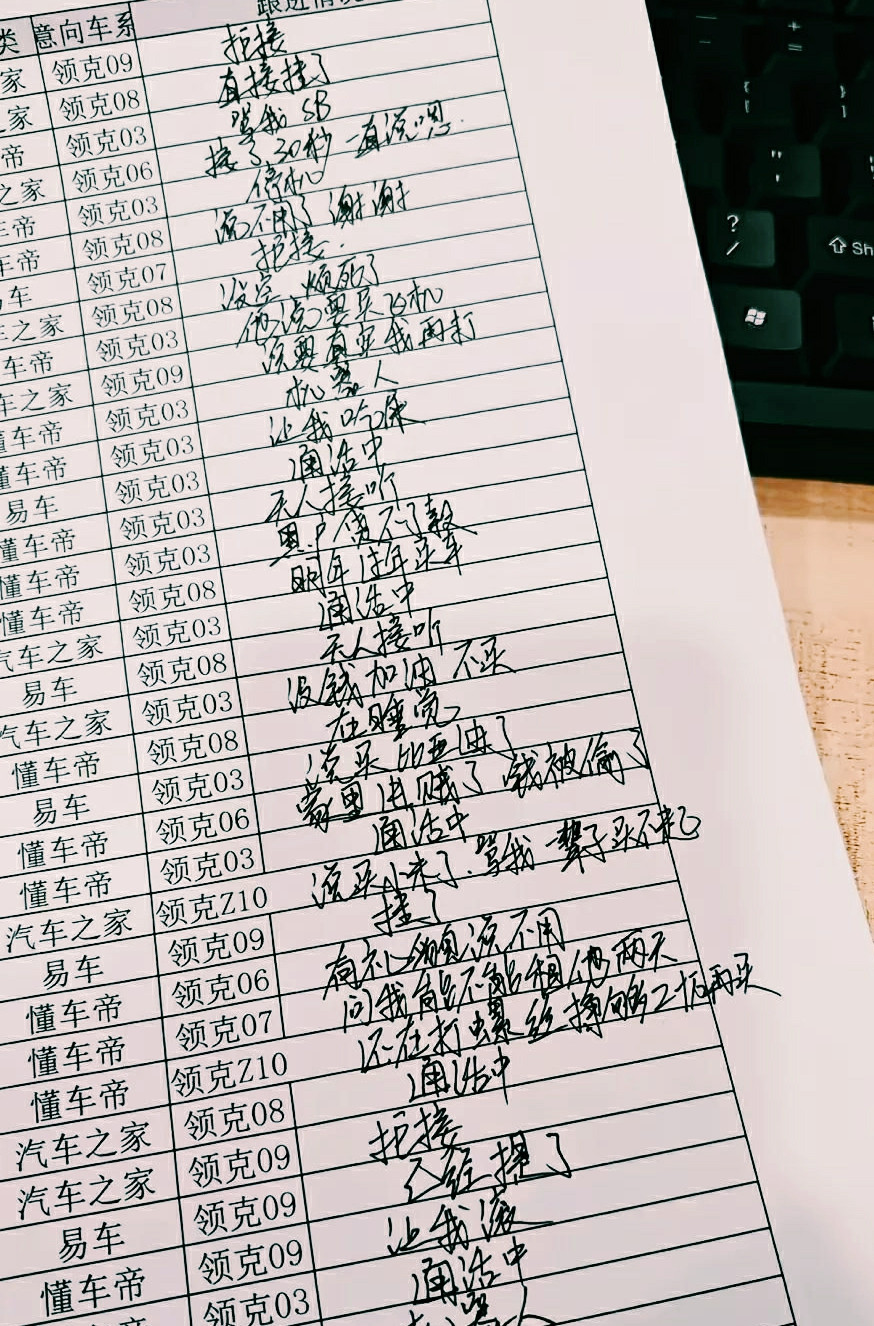 类 意向车系 跟进情况
家 领克09 拒接
之家 领克08 直接挂了
帝 领克03 骂我SB
之家 领克06 接了30秒 一直说嗯.
车帝 领克03 停机
车帝 领克08 说不用了 谢谢
车 领克07 拒接.
车之家 领克08 没空 烦死了
车帝 领克03 他说要买飞机
车之家 领克09 说要真买我再打
懂车帝 领克03 机器人
懂车帝 领克03 让我吃屎
易车 领克03 通话中
懂车帝 领克03 无人接听
懂车帝 领克03 黑户贷不了款
懂车帝 领克08 明年过年买车
汽车之家 领克03 通话中
易车 领克08 无人接听
汽车之家 领克03 没钱加油 不买
懂车帝 领克08 在睡觉
易车 领克03 说买比亚迪了
懂车帝 领克06 家里进贼了 钱被偷了
懂车帝 领克03 通话中
汽车之家 领克Z10 说买小米了.骂我一辈子买不起
易车 领克09 挂了
懂车帝 领克06 有礼貌说不用
懂车帝 领克07 问我能不能租他两天
懂车帝 领克Z10 还在打螺丝 再买
汽车之家 领克08 通话中
汽车之家 领克09 拒接
易车 领克09 已经提了
懂车帝 领克09 让我滚
车帝 领克03 通话中
机器人
? /
Sh